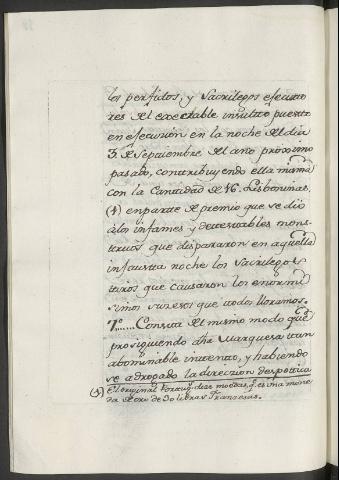 los perfidos, y Sacrilegos efecuto
res del execrable insulto puesto
en efecucion en la noche del dia
3 de Septiembre del año proximo
pasado, contribuyendo ella misma
con la Cantidad de 16. Lisboninas,
(1) en parte de premio que se dió
à los infames y detestables mons-
truos que dispararon en aquella
infausta noche los Sacrilegos
tiros que causaron los enormi
simos sucesos que todos lloramos.
7º...... Consta del mismo modo que
prosiguiendo dha Marquesa tan
abominable intento, y habiendo
se adrogado la direccion despotica
(1) El original Portug. dice moedas, q. es una mone
da de oro de 30 libras Francesas.